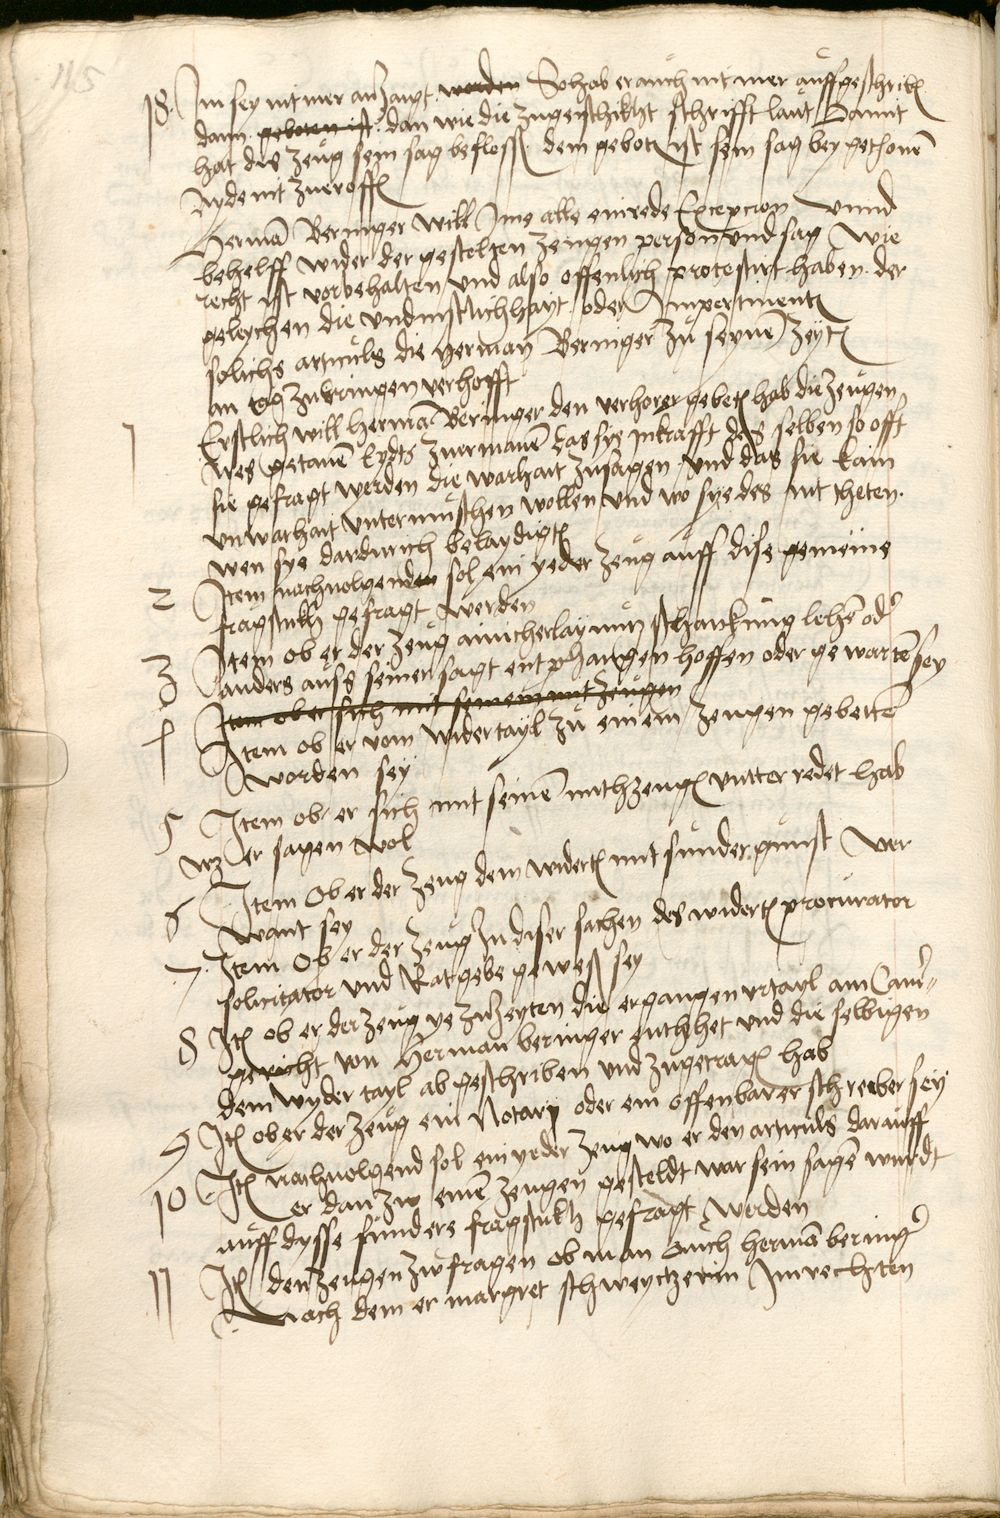 115
18. Im sey nit mer anzaigt worden So hab er auch nit mer auffgeschribn
dann geboten ist. dan wie die zugeschickht schrifft laut Damit
hat dis zeug sein sag beslossn. dem geboten ist sein sag bey gethonē
Ayde nit zueroffn
Hermā Beringer will Ime alle einrede Excepcion vnnd
behelff wider der gestelten zeugen person vnd sag wie
recht ist vorbehalten vnd also offenlich protestirt haben. der
geleychen die vndinstlichhayt oder Impertinentz
solichs articuls die Herman Beringer zu seynē zeytn
an tag zubringen verhofft
1 Erstlich will Hermā Beringer den verhorer gebetn hab die zeugen
ires getanē Eydts zuermanē das sye inkrafft des selben so offt
sie gefragt werden die warhait zusagen vnd das sie kain
vnwarhait vntermischen wollen vnd wo sye des nit theten.
wen sye dardurch belaydigtn
2 Item nachuolgenden sol ein yeder zeug auff dise gemeine
fragstukh gefragt werden
3 Item ob er der zeug ainicherlay nutz schankung lehē od
anders auss seiner sagt entphangen hoffen oder gewartē sey
Item ob er sich mit seinem mitzeugen
4 Item ob er vom widertayl zu einem zeugen gebettē
worden sey
5 Item ob er sich mit seinē mithzeugn vntter redet hab
wz er sagen wol
6 Item Ob er der zeug dem widertn mit sunder gunst ver
want sey
7. Item Ob er der zeug In diser sachen des widertn procurator
solicitator vnd Ratgebe gewest sey
8 Itn ob er der zeug ye zuzeyten die ergangen vrtayl am Cam
gericht von Herman beringer enthhet vnd die selbigen
dem wyder tayl ab geschriben vnd zugetragn hab
9 Itn ob er der zeug ein Notary oder ein offenbarer schreiber sey
10 Itn nachuolgend sol ein yeder zeug wo er den articuls darauff
er dan zw einē zeugen gesteldt war sein sagē wurdt
auff dysse sundere fragstukh gefragt werden
11 Itn den zeugen zw fragen ob man auch Hermā bering
Nach dem er margret schweytzerin Im rechten